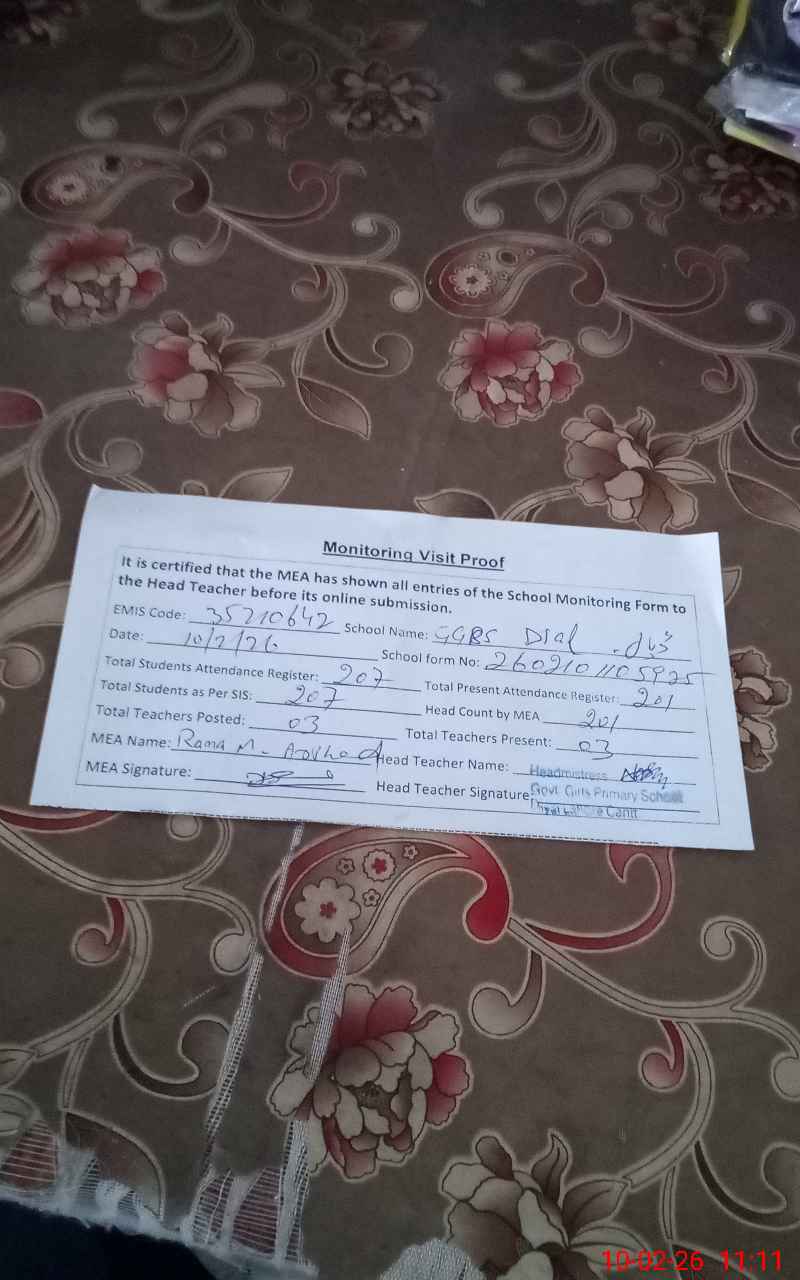 Monitoring Visit Proof
It is certified that the MEA has shown all entries of the School Monitoring Form to
the Head Teacher before its online submission.
EMIS Code: 35210642 School Name: GGPS Dial
Date: 10/2/26 School form No: 2602101105925
Total Students Attendance Register: 207 Total Present Attendance Register: 201
Total Students as Per SIS: 207 Head Count by MEA 201
Total Teachers Posted: 03 Total Teachers Present: 03
MEA Name: Rana M. Arshad Head Teacher Name: Headmistress
MEA Signature: Head Teacher Signature Govt. Girls Primary School
Lahore Cantt
10-02-26 11:11